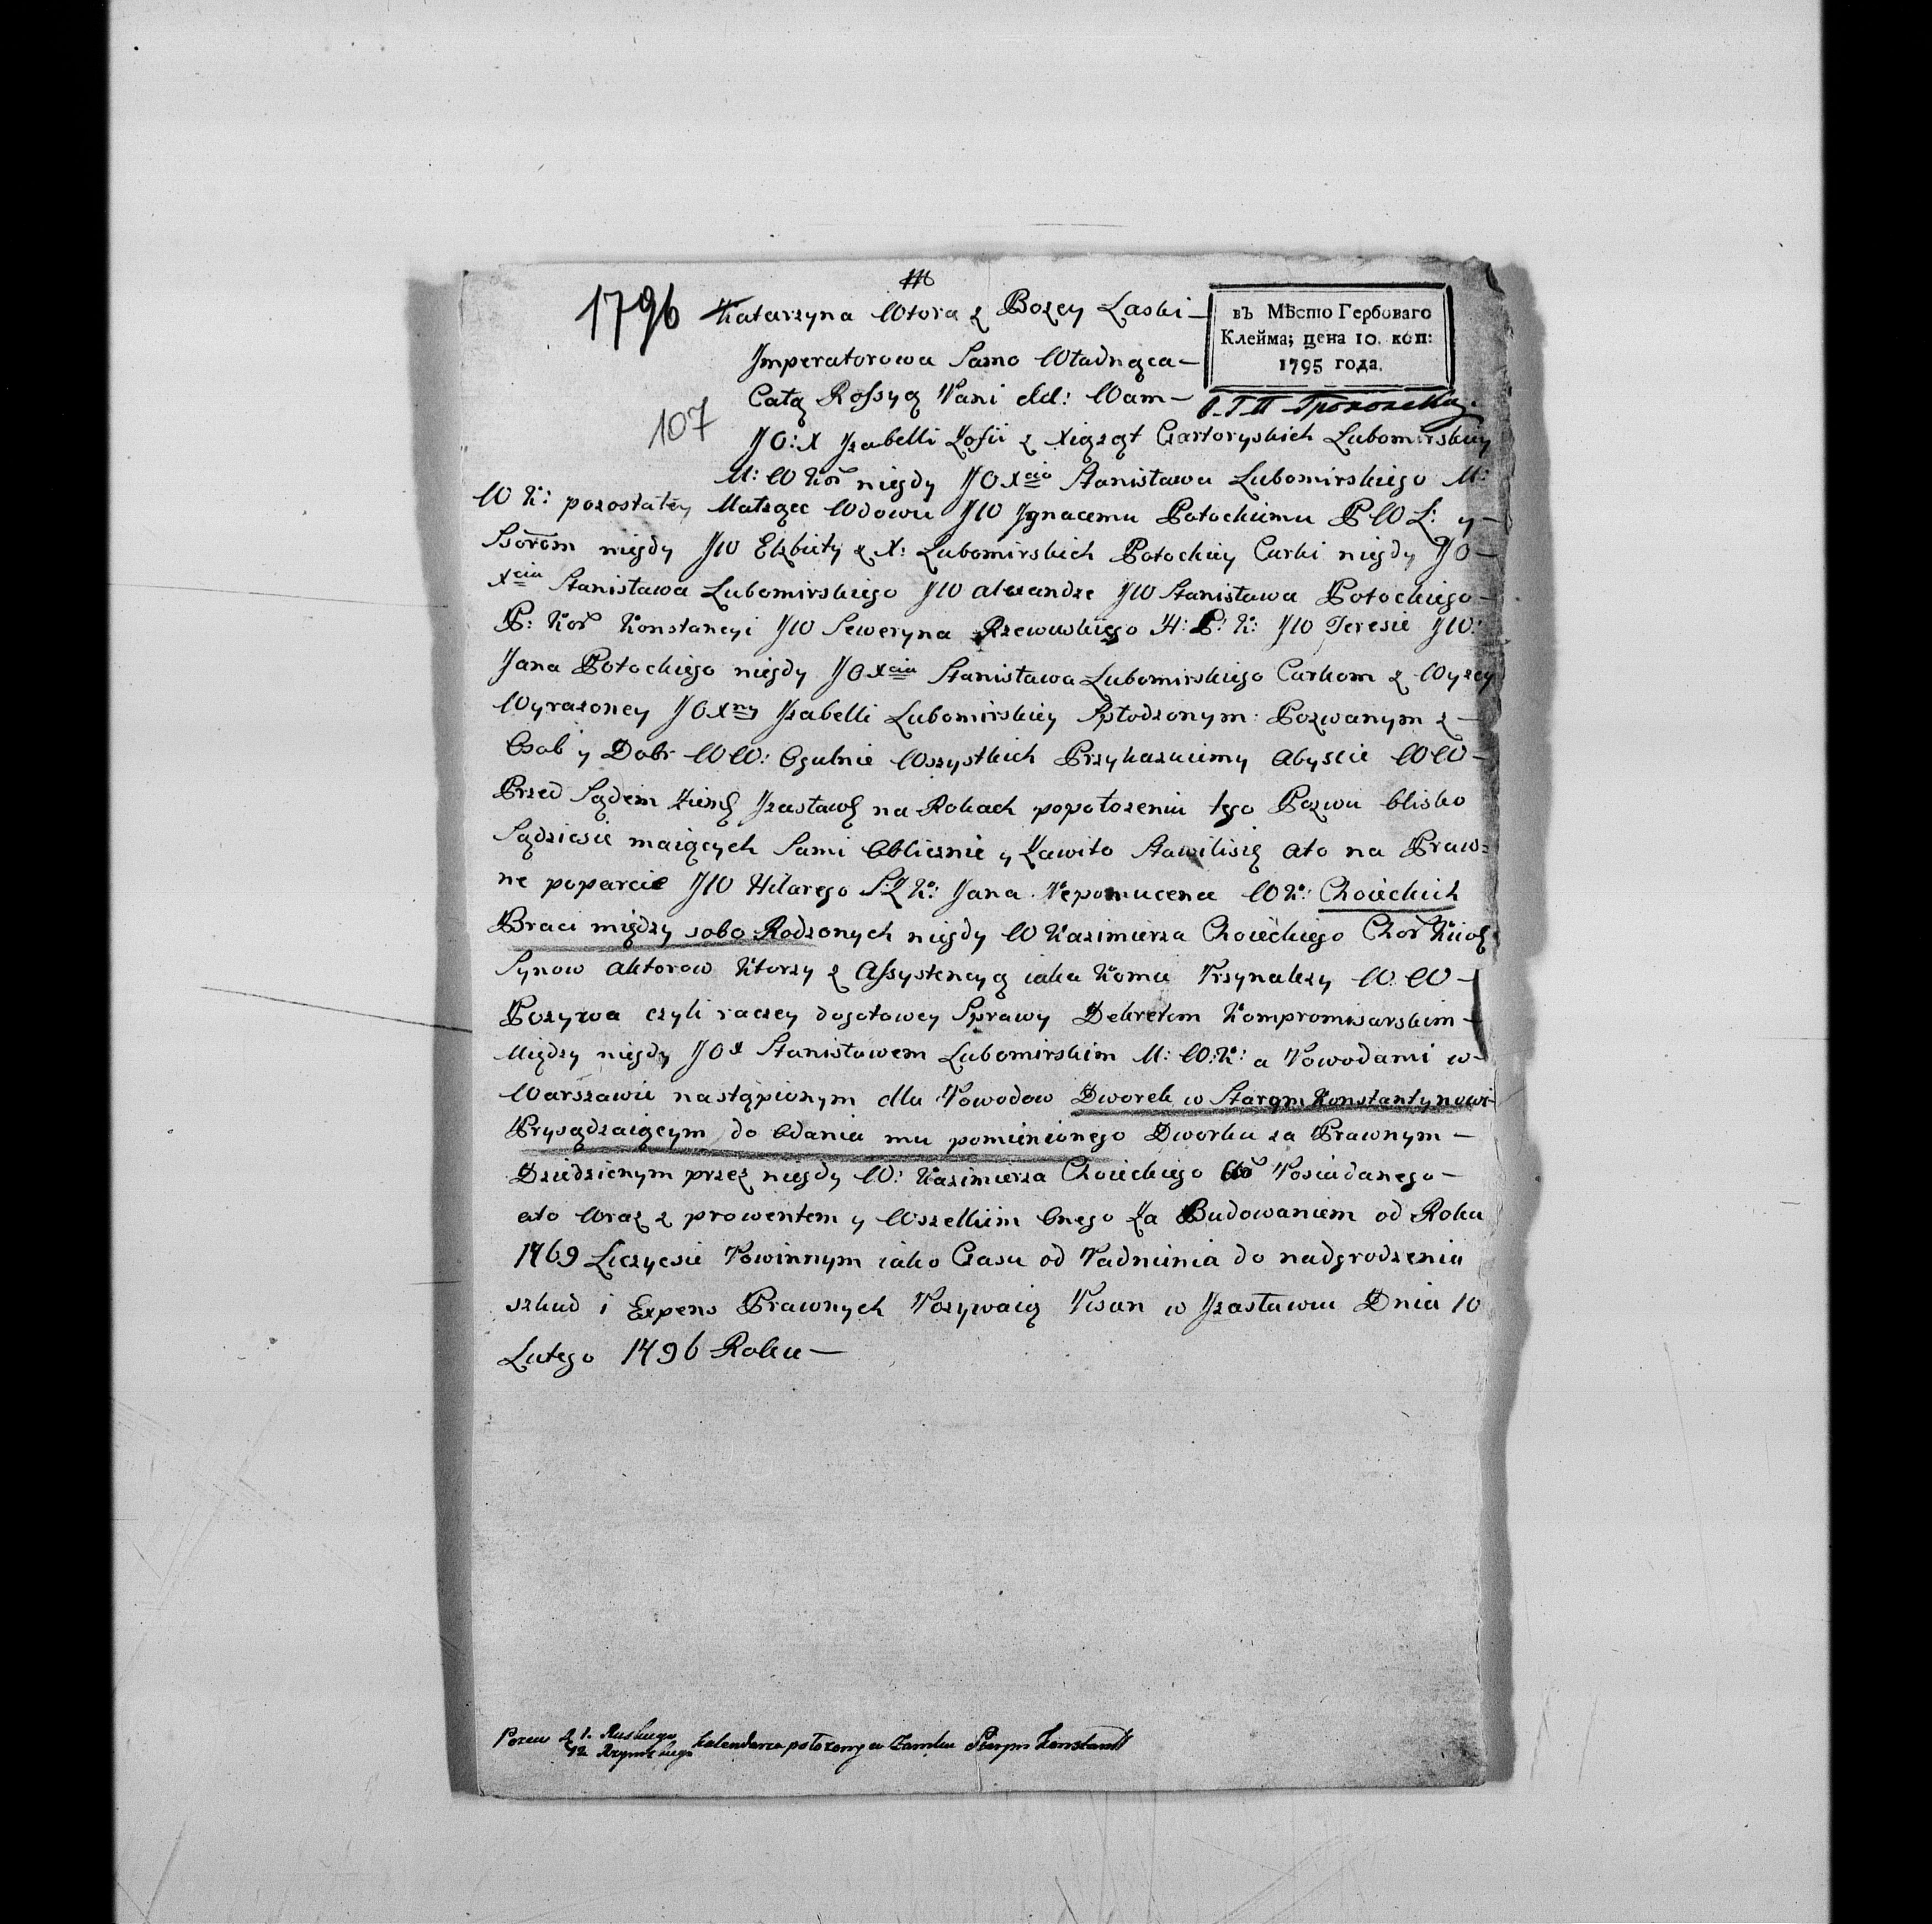 1796
Katarzyna Wtora z Bozey Laski —
въ Мѣсто Гербоваго
Клейма; цена 10. коп:
1795 года.
Jmperatorowa Samo Władnąca —
Całą Rossyą Pani etd: Wam —
107
JO: X Jzabelli Zofii z Xiąząt Czartoryskich Lubomirskiey
M: W Kor niegdy JO Xcia Stanisława Lubomirskiego M:
W K: pozostałey Małzące Wdowie JW Jgnacemu Potockiemu P W L: y —
Ssorom niegdy JW Elzbiety z X: Lubomirskich Potockiey Curki niegdy JO —
Xcia Stanisława Lubomirskiego JW alexandrze JW Stanisława Potockiego —
P: Kor Konstancyi JW Seweryna Rzewuskiego H: P: K: JW Teresie JW:
Jana Potockiego niegdy JO Xcia Stanisława Lubomirskiego Curkom z Wyzey
Wyrazoney JO Xny Jzabelli Lubomirskiey Spłodzonym: Pozwanym z —
Osob y Dobr WW: Ogulnie Wszystkich Przykazuiemy Abyscie WW —
Przed Sądem Ziems Jzasławs na Rokach popołozeniu tego Pozwu blisko
Sądziesie maiących Sami Oblicznie y Zawito Stawilisię Ato na Praw:
ne poparcie JW Hilarego S: Z K: Jana Nepomucena W K: Choieckich
Braci między sobo Rodzonych niegdy W Kazimierza Choieckiego Chor Kiios
Synow Aktorow Ktorzy z Assystencyą iaka Komu Przynalezy W W —
Pozywa czyli raczey dogotowey Sprawy Dekretem Kompromisarskim —
Między niegdy JO X Stanisławem Lubomirskim M: W: K: a Powodami w —
Warszawie nastąpionym dla Powodow Dworek w Starym Konstantynowi
Prysądzaiącym do Odania mu pomienionego Dworku za Prawnym —
Dziedzicnym przez niegdy W: Kazimierza Choieckiego Posiadanego —
ato Wraz z prowentem y Wszelkim Onego Za Budowaniem od Roku
1769 Liczycsie Powinnym iako Czasu od Padnienia do nadgrodzenia
szkud i Expens Prawnych Pozywaią Pisan w Jzasławiu Dnia 10
Lutego 1796 Roku —
Pozew 1. Ruskiego
12 Rzymskiego kalendarza połozony w Zamku Starym Konstant